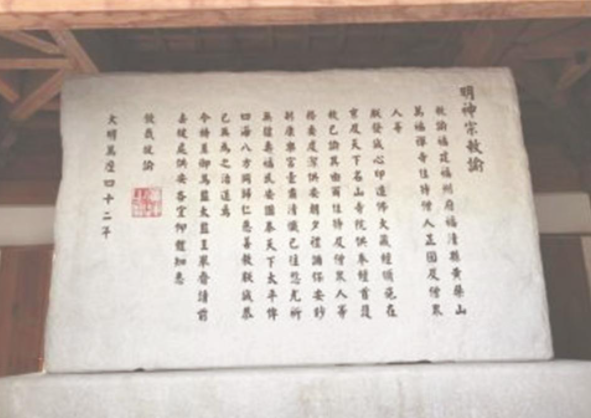 明神宗敕諭
敕諭福建福州府福清縣黃檗山
萬福禪寺住持僧人正圓及僧眾
人等
朕發誠心印造佛大藏經頒施在
京及天下名山寺院供奉經首護
敕已諭其由爾住持及僧眾人等
務要虔潔供安朝夕禮誦保安眇
躬康樂宮壼肅清懺已往愆尤祈
無疆壽福民安國泰天下太平俾
四海八方同歸仁慈善教朕成恭
已無為之治道焉
今特差御馬監太監王舉齎請前
去彼處供安各宜仰體知悉
欽哉故諭
大明萬曆四十二年